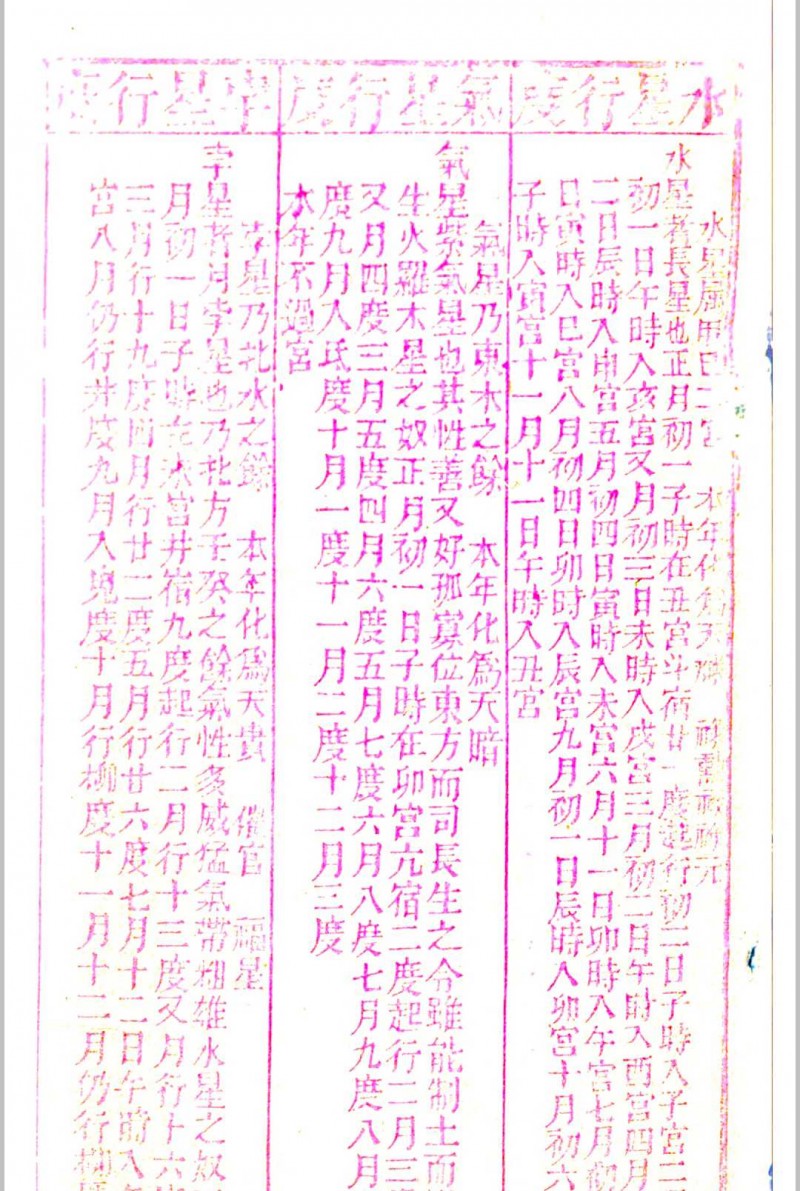 水星行度
水星屬甲巳二宮　本年化為天　元
水星者長星也正月初一子時在丑宮斗宿廿一度起行初二日子時入子宮二
初一日午時入亥宮又月初三日未時入戌宮三月初二日午時入酉宮四月
二日辰時入申宮五月初四日寅時入未宮六月十一日卯時入午宮七月初
日寅時入巳宮八月初四日卯時入辰宮九月初一日辰時入卯宮十月初六
子時入寅宮十一月十一日午時入丑宮
氣星行度
氣星乃東木之餘　本年化爲天暗
氣星紫氣星也其性善又好孤寡位東方而司長生之令雖能制土而
生火羅木星之奴正月初一日子時在卯宮亢宿二度起行二月三
又月四度三月五度四月六度五月七度六月八度七月九度八月
度九月入氐度十月一度十一月二度十二月三度
本年不過宮
孛星行度
孛星乃北水之餘　本年化爲天貴　催官　福星
孛星者月孛星也乃北方壬癸之餘氣性多威猛氣帶雄水星之奴
月初一日子時在未宮井宿九度起行二月行十三度又月行十六
三月行十九度四月行廿二度五月行廿六度七月十二日午時入
宮八月仍行井度九月入鬼度十月行柳度十一月十二月仍行柳